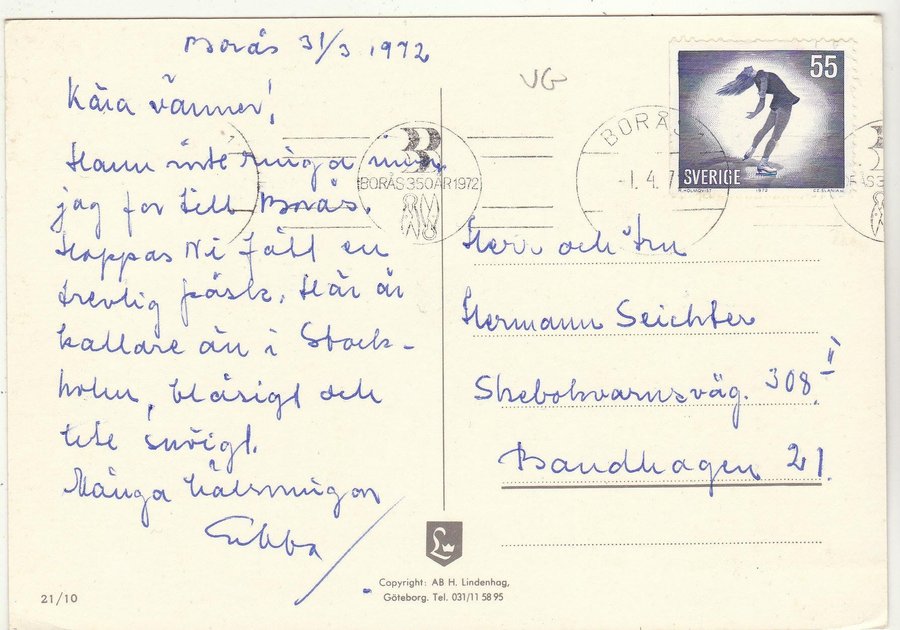 Borås 31/3 1972
Kära vänner!
Hann inte ringa innan
jag for till Borås.
Hoppas Ni fått en
trevlig påsk. Här är
kallare än i Stock-
holm, blåsigt och
lite snöigt.
Många hälsningar
Ebba
VG
55
SVERIGE
1972
BORÅS
-1.4.7
BORÅS 350 ÅR 1972
Herr och Fru
Hermann Seichter
Skebokvarnsväg. 308 II
Bandhagen 21.
L
Copyright: AB H. Lindenhag,
Göteborg. Tel. 031/11 58 95
21/10